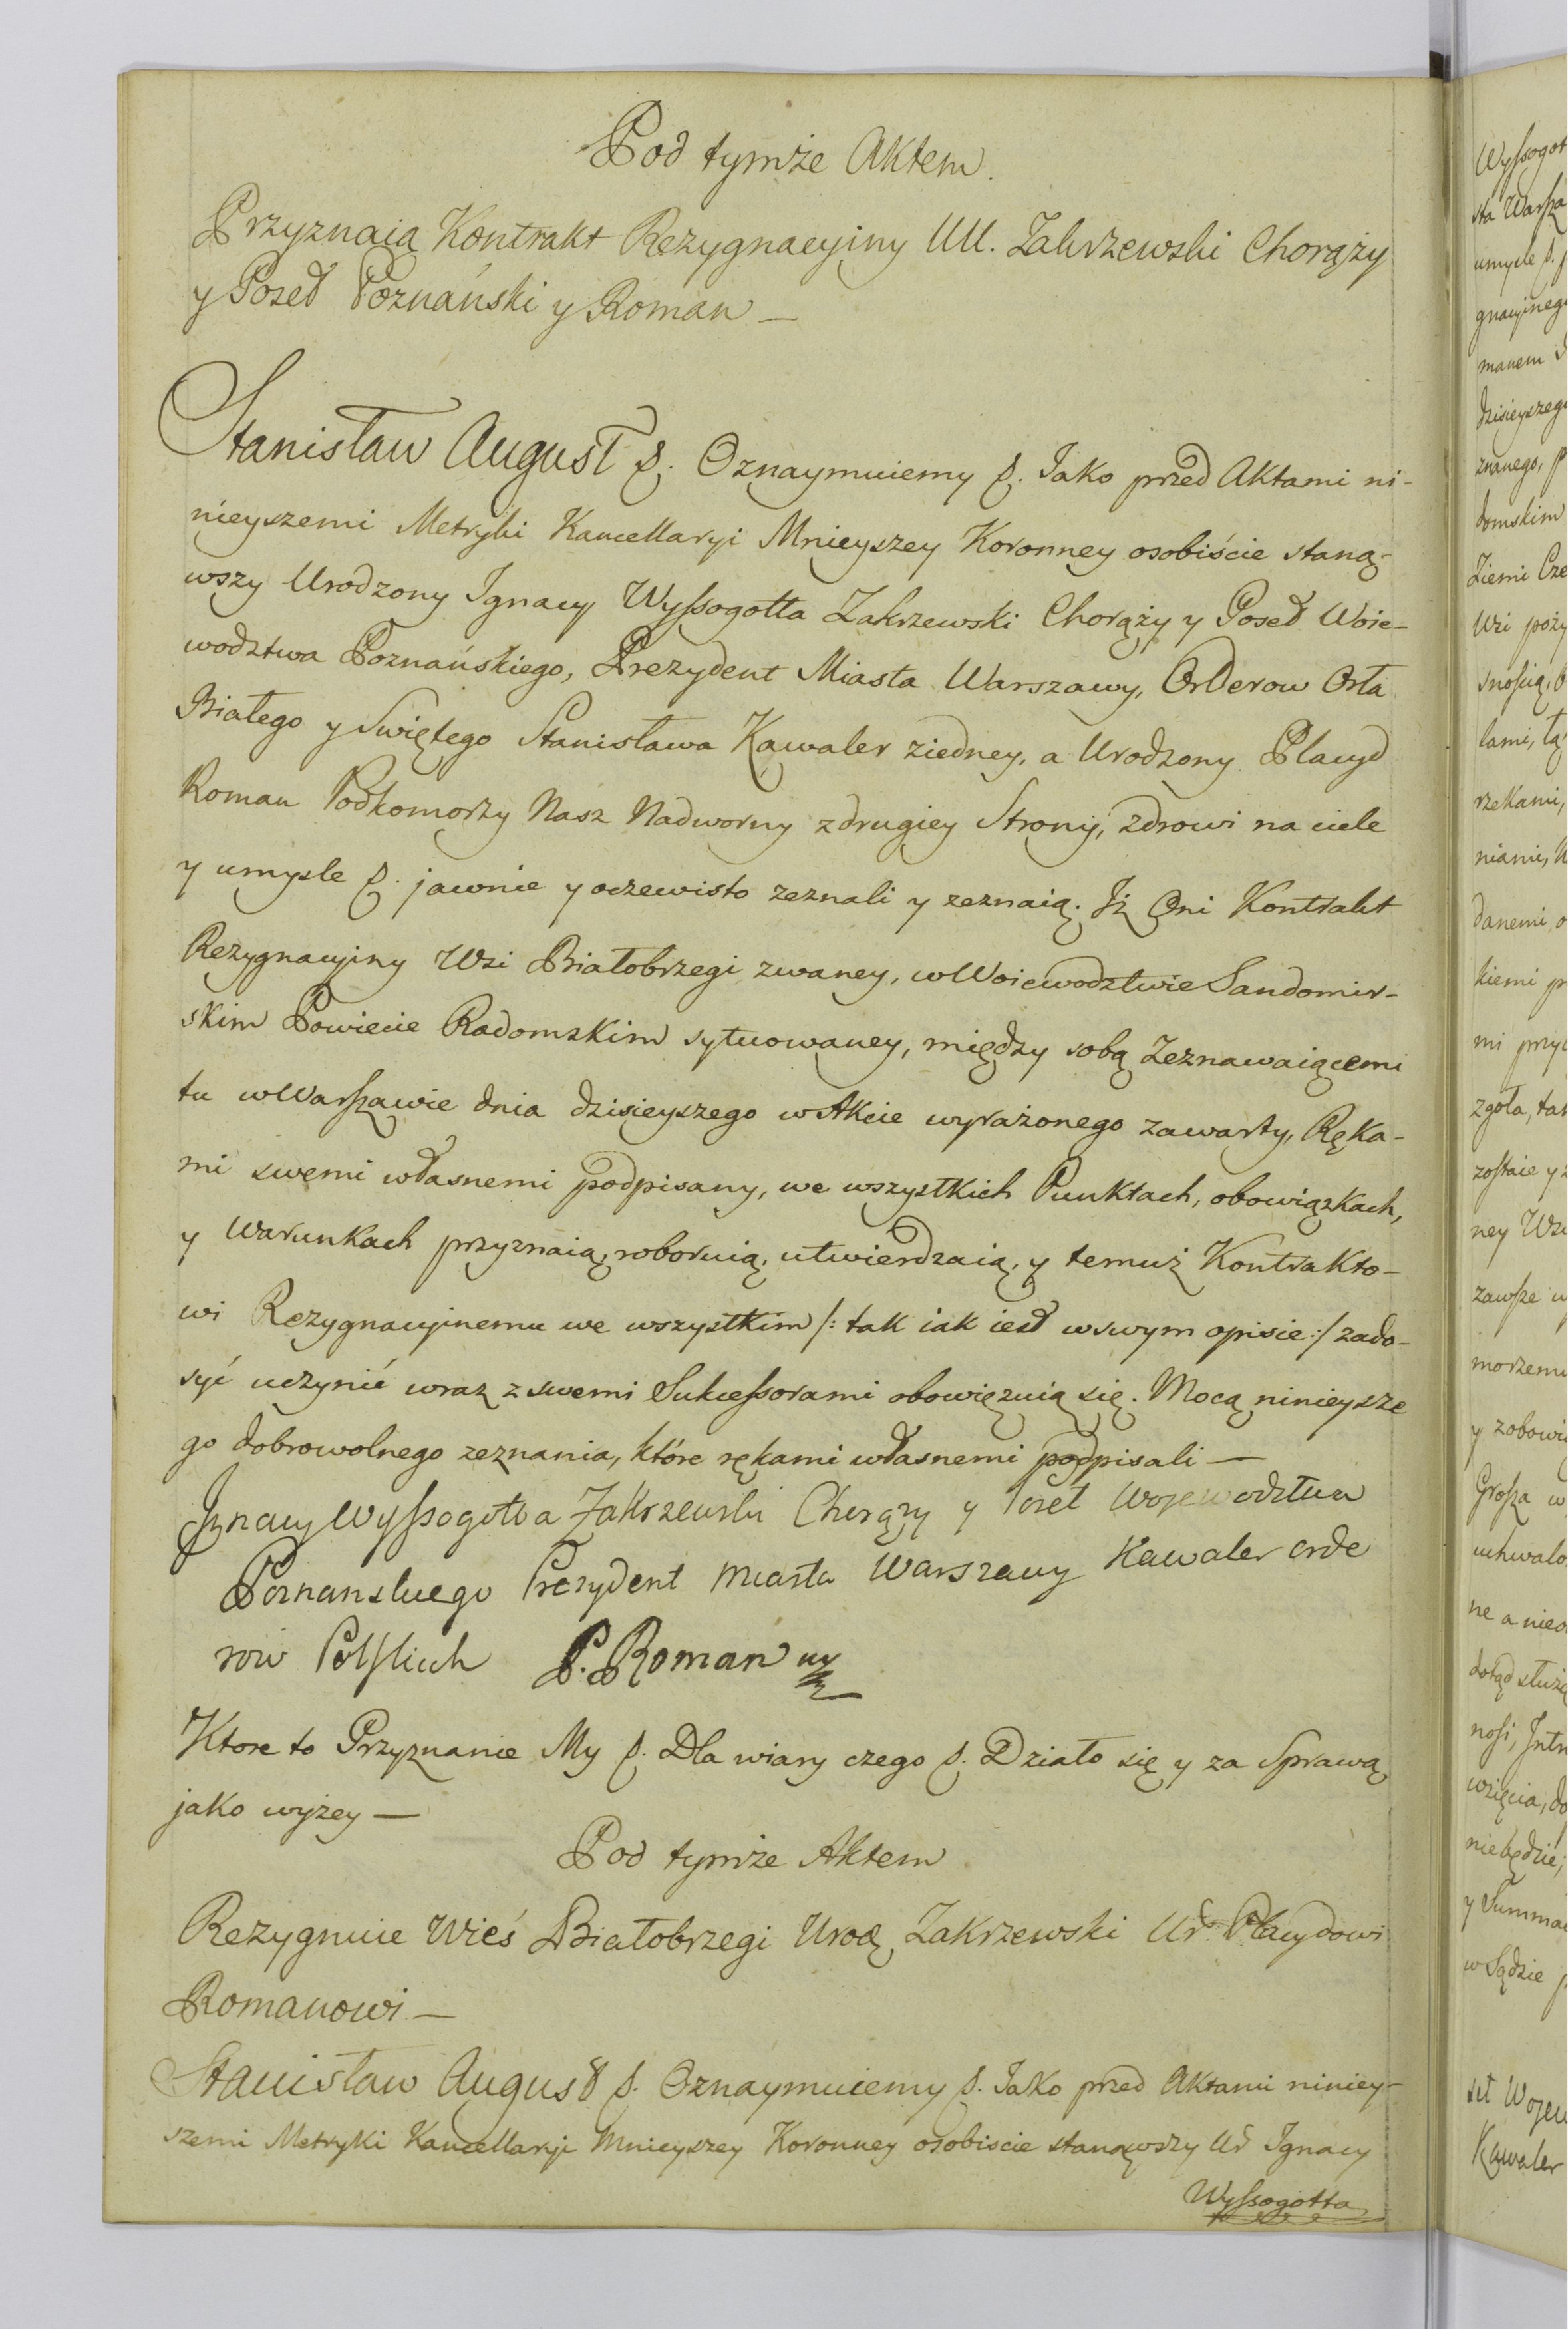 Pod tymże Aktem.
Przyznaią Kontrakt Rezygnacyiny UU. Zakrzewski Chorąży
y Poseł Poznański y Roman —
Stanisław August &. Oznaymuiemy &. Jako przed Aktami ni-
nieyszemi Metryki Kancellaryi Mnieyszey Koronney osobiście staną-
wszy Urodzony Ignacy Wyssogotta Zakrzewski Chorąży y Poseł Woie-
wodztwa Poznańskiego, Prezydent Miasta Warszawy, Orderow Orła
Białego y Swiętego Stanisława Kawaler ziedney, a Urodzony Placyd
Roman Podkomorzy Nasz Nadworny z drugiey Strony, zdrowi na ciele
y umysle &. jawnie y oczewisto zeznali y zeznaią. Iż Oni Kontrakt
Rezygnacyiny Wsi Białobrzegi zwaney, w Woiewodztwie Sandomir-
skim Powiecie Radomskim sytuowaney, między sobą Zeznawaiącemi
tu w Warszawie dnia dzisieyszego w Akcie wyrażonego zawarty, Ręka-
mi swemi własnemi podpisany, we wszystkich Punktach, obowiązkach,
y Warunkach przyznaią, roboruią, utwierdzaią, y temuż Kontrakto-
wi Rezygnacyinemu we wszystkim /: tak iak iest w swym opisie :/ zado-
syć uczynić wraz z swemi Sukcessorami obowięzuią się. Mocą ninieysze
go dobrowolnego zeznania, które rękami własnemi podpisali —
Ignacy Wyssogotta Zakrzewski Chorąży y Poseł Wojewodztwa
Poznanskiego Prezydent Miasta Warszawy Kawaler orde
row Polskich P. Roman
Ktore to Przyznanie My &. Dla wiary czego &. Działo się y za Sprawą
jako wyżey —
Pod tymże Aktem
Rezygnuie Wieś Białobrzegi Urod. Zakrzewski Ur. Placydowi
Romanowi —
Stanisław August &. Oznaymuiemy &. Jako przed Aktami niniey-
szemi Metryki Kancellaryi Mnieyszey Koronney osobiscie stanąwszy Ur Ignacy
Wyssogotta